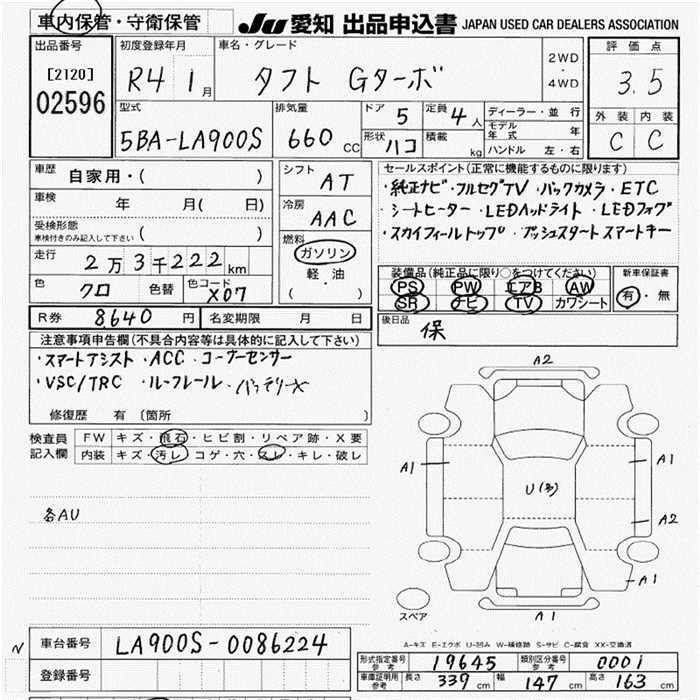 車内保管・守衛保管 JU 愛知 出品申込書 JAPAN USED CAR DEALERS ASSOCIATION
出品番号 初度登録年月 車名・グレード 2WD・4WD 評価点
[2120] R4 1月 タフト Gターボ 3.5
02596 型式 排気量 ドア 5 定員 4人 ディーラー・並行 外装 内装
5BA-LA900S 660cc 形状 ハコ 積載 kg モデル年式 年 C C
ハンドル 左・右
車歴 自家用・( ) シフト AT セールスポイント(正常に機能するものに限ります)
車検 年 月( 日) 冷房 AAC ・純正ナビ・フルセグTV・バックカメラ・ETC
受検形態 車検付きのみ記入して下さい ( ) ・シートヒーター・LEDヘッドライト・LEDフォグ
走行 2万3千222km 燃料 ガソリン ・スカイフィールトップ・プッシュスタート スマートキー
色 クロ 色替 色コード X07 軽・油 ( )
装備品(純正品に限り○をつけてください) 新車保証書
PS PW エアB AW 有・無
SR ナビ TV カワシート
R券 8,640円 名変期限 月 日 後日品 保
注意事項申告欄(不具合内容等は具体的に記入して下さい)
・スマートアシスト・ACC・コーナーセンサー
・VSC/TRC・ルーフレール・バッテリーX
修復歴 有(箇所 )
検査員記入欄 FW キズ・飛石・ヒビ割・リペア跡・X要
内装 キズ・汚レ・コゲ・穴・スレ・キレ・破レ
各AU
A2
A1 A1
U(多)
A2
A1
スペア A1
A-キズ E-エクボ U-凹み W-補修跡 S-サビ C-腐食 XX-交換済
N 車台番号 LA900S-0086224
登録番号
形式指定番号 参考 19645 類別区分番号 参考 0001
車庫証明用 参考 長さ 339cm 幅 147cm 高さ 163cm